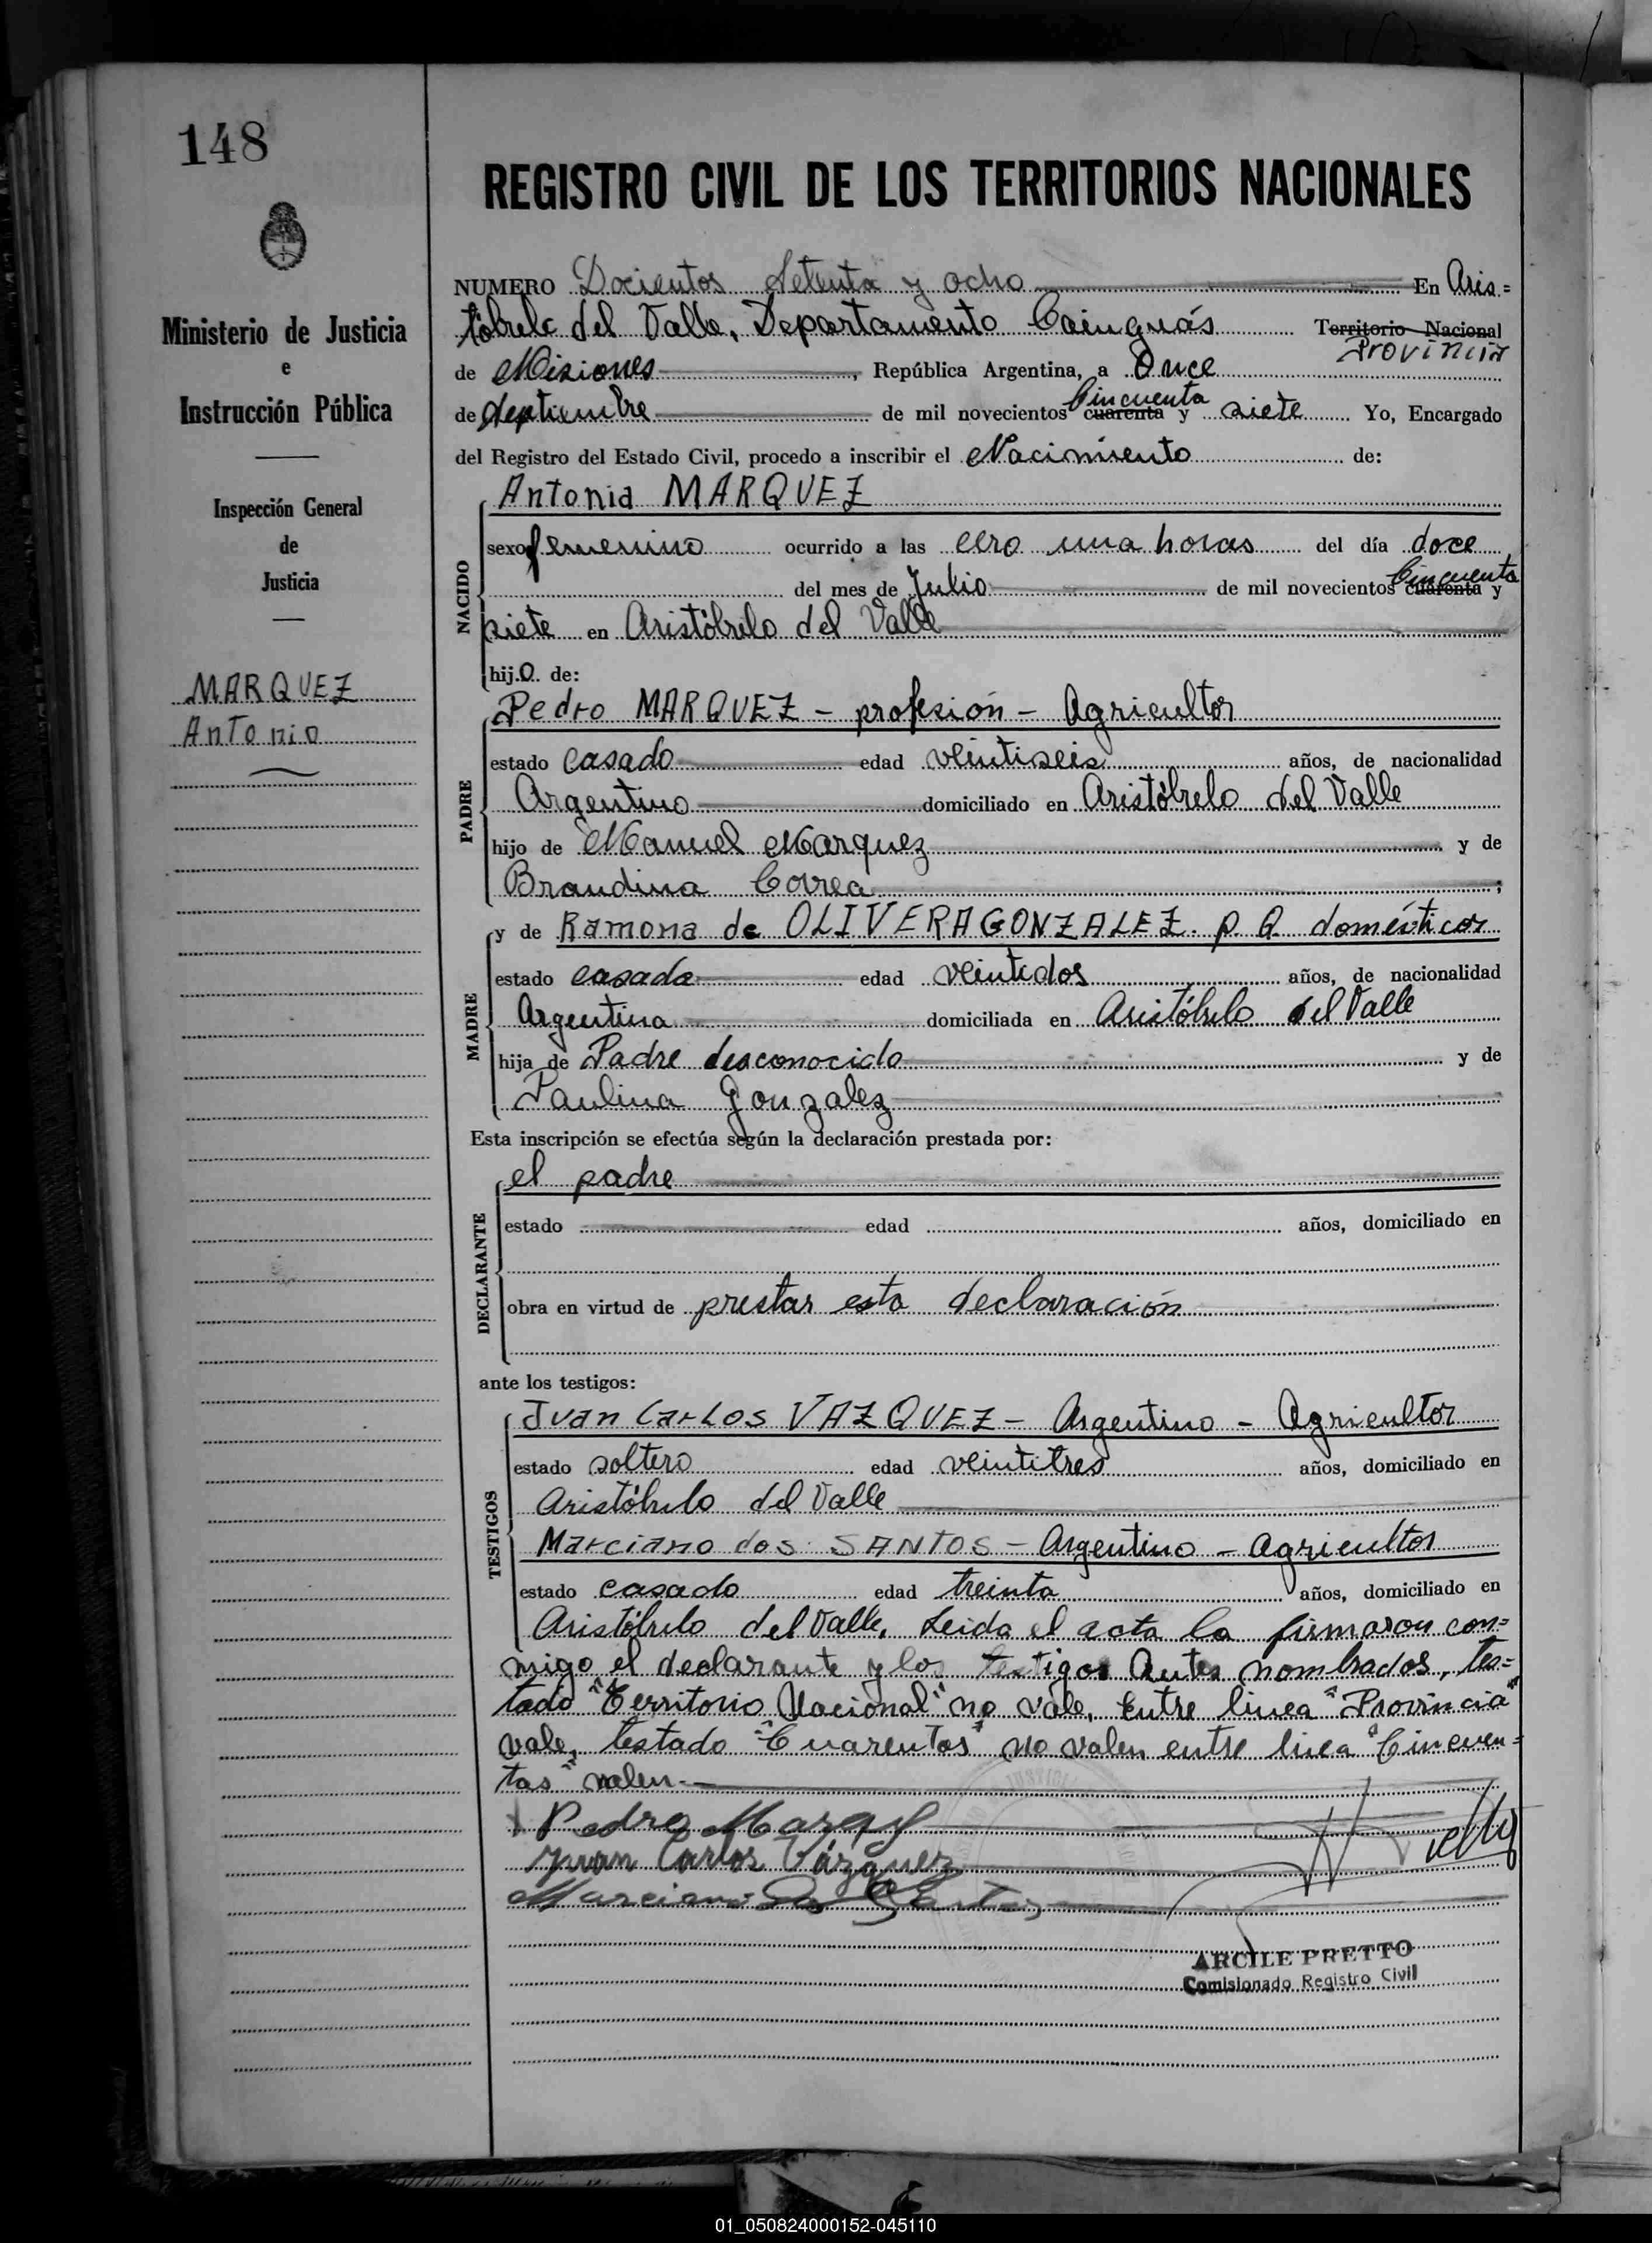 148
REGISTRO CIVIL DE LOS TERRITORIOS NACIONALES
Ministerio de Justicia
e
Instrucción Pública
Inspección General
de
Justicia
MARQUEZ
Antonio
NUMERO Docientos Setenta y ocho En Aris=
tóbulo del Valle, Departamento Cainguás Territorio Nacional
Provincia
de Misiones, República Argentina, a Once
Cincuenta
de Septiembre de mil novecientos cuarenta y siete Yo, Encargado
del Registro del Estado Civil, procedo a inscribir el Nacimiento de:
NACIDO
Antonia MARQUEZ
sexo femenino ocurrido a las cero una horas del día doce
Cincuenta
del mes de Julio de mil novecientos cuarenta y
siete en Aristóbulo del Valle
hija de:
PADRE
Pedro MARQUEZ - profesión - Agricultor
estado casado edad veintiseis años, de nacionalidad
Argentino domiciliado en Aristóbulo del Valle
hijo de Manuel Marquez y de
Brandina Correa;
MADRE
y de Ramona de OLIVERA GONZALEZ. p. Q. domésticos
estado casada edad veintidos años, de nacionalidad
Argentina domiciliada en Aristóbulo del Valle
hija de Padre desconocido y de
Paulina Gonzalez
Esta inscripción se efectúa según la declaración prestada por:
DECLARANTE
el padre
estado edad años, domiciliado en
obra en virtud de prestar esta declaración
ante los testigos:
TESTIGOS
Juan Carlos VAZQUEZ - Argentino - Agricultor
estado soltero edad veintitres años, domiciliado en
Aristóbulo del Valle
Marciano dos SANTOS - Argentino - agricultor
estado casado edad treinta años, domiciliado en
Aristóbulo del Valle. Leida el acta la firmaron con=
migo el declarante y los testigos antes nombrados, tes=
tado "Territorio Nacional" no vale, Entre linea "Provincia"
vale, testado "Cuarentas" no valen entre linea "Cincuen=
tas" valen.-
Pedro
Juan Carlos Vázquez
Marciano Dos Santos
ARCILE PRETTO
Comisionado Registro Civil
01_050824000152-045110